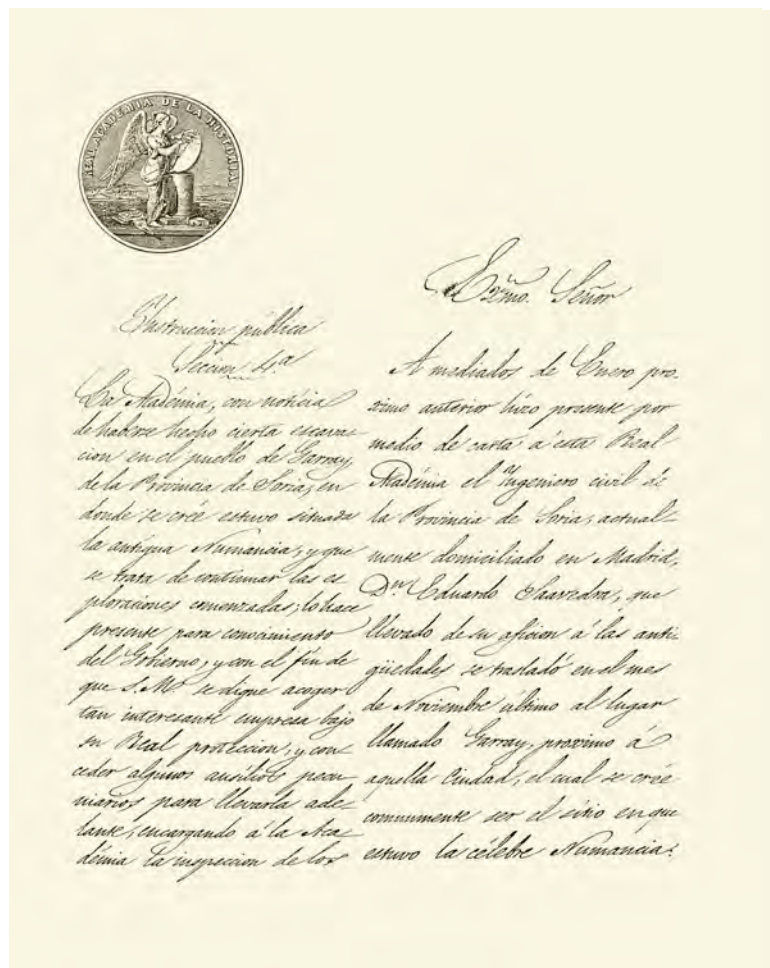 REAL ACADEMIA DE LA HISTORIA
Instruccion pública
Seccion 4.a
La Académia, con noticia
de haberse hecho cierta escava-
cion en el pueblo de Garray,
de la Provincia de Soria, en
donde se crée estuvo situada
la antigua Numancia, y que
se trata de continuar las es
ploraciones comenzadas, lo hace
presente para conocimiento
del Gobierno, y con el fin de
que S. M. se digne acoger
tan interesante empresa bajo
su Real proteccion, y con
ceder algunos ausilios pecu
niarios para llevarla ade-
lante, encargando á la Aca
démia la inspeccion de los
Exmo. Señor
A mediados de Enero pro-
ximo anterior hizo presente por
medio de carta á esta Real
Académia el Yngeniero civil de
la Provincia de Soria, actual-
mente domiciliado en Madrid,
Dn. Eduardo Saavedra, que
llevado de su aficion á las anti-
güedades se trasladó en el mes
de Noviembre último al lugar
llamado Garray, proximo á
aquella Ciudad, el cual se crée
comunmente ser el sitio en que
estuvo la célebre Numancia: